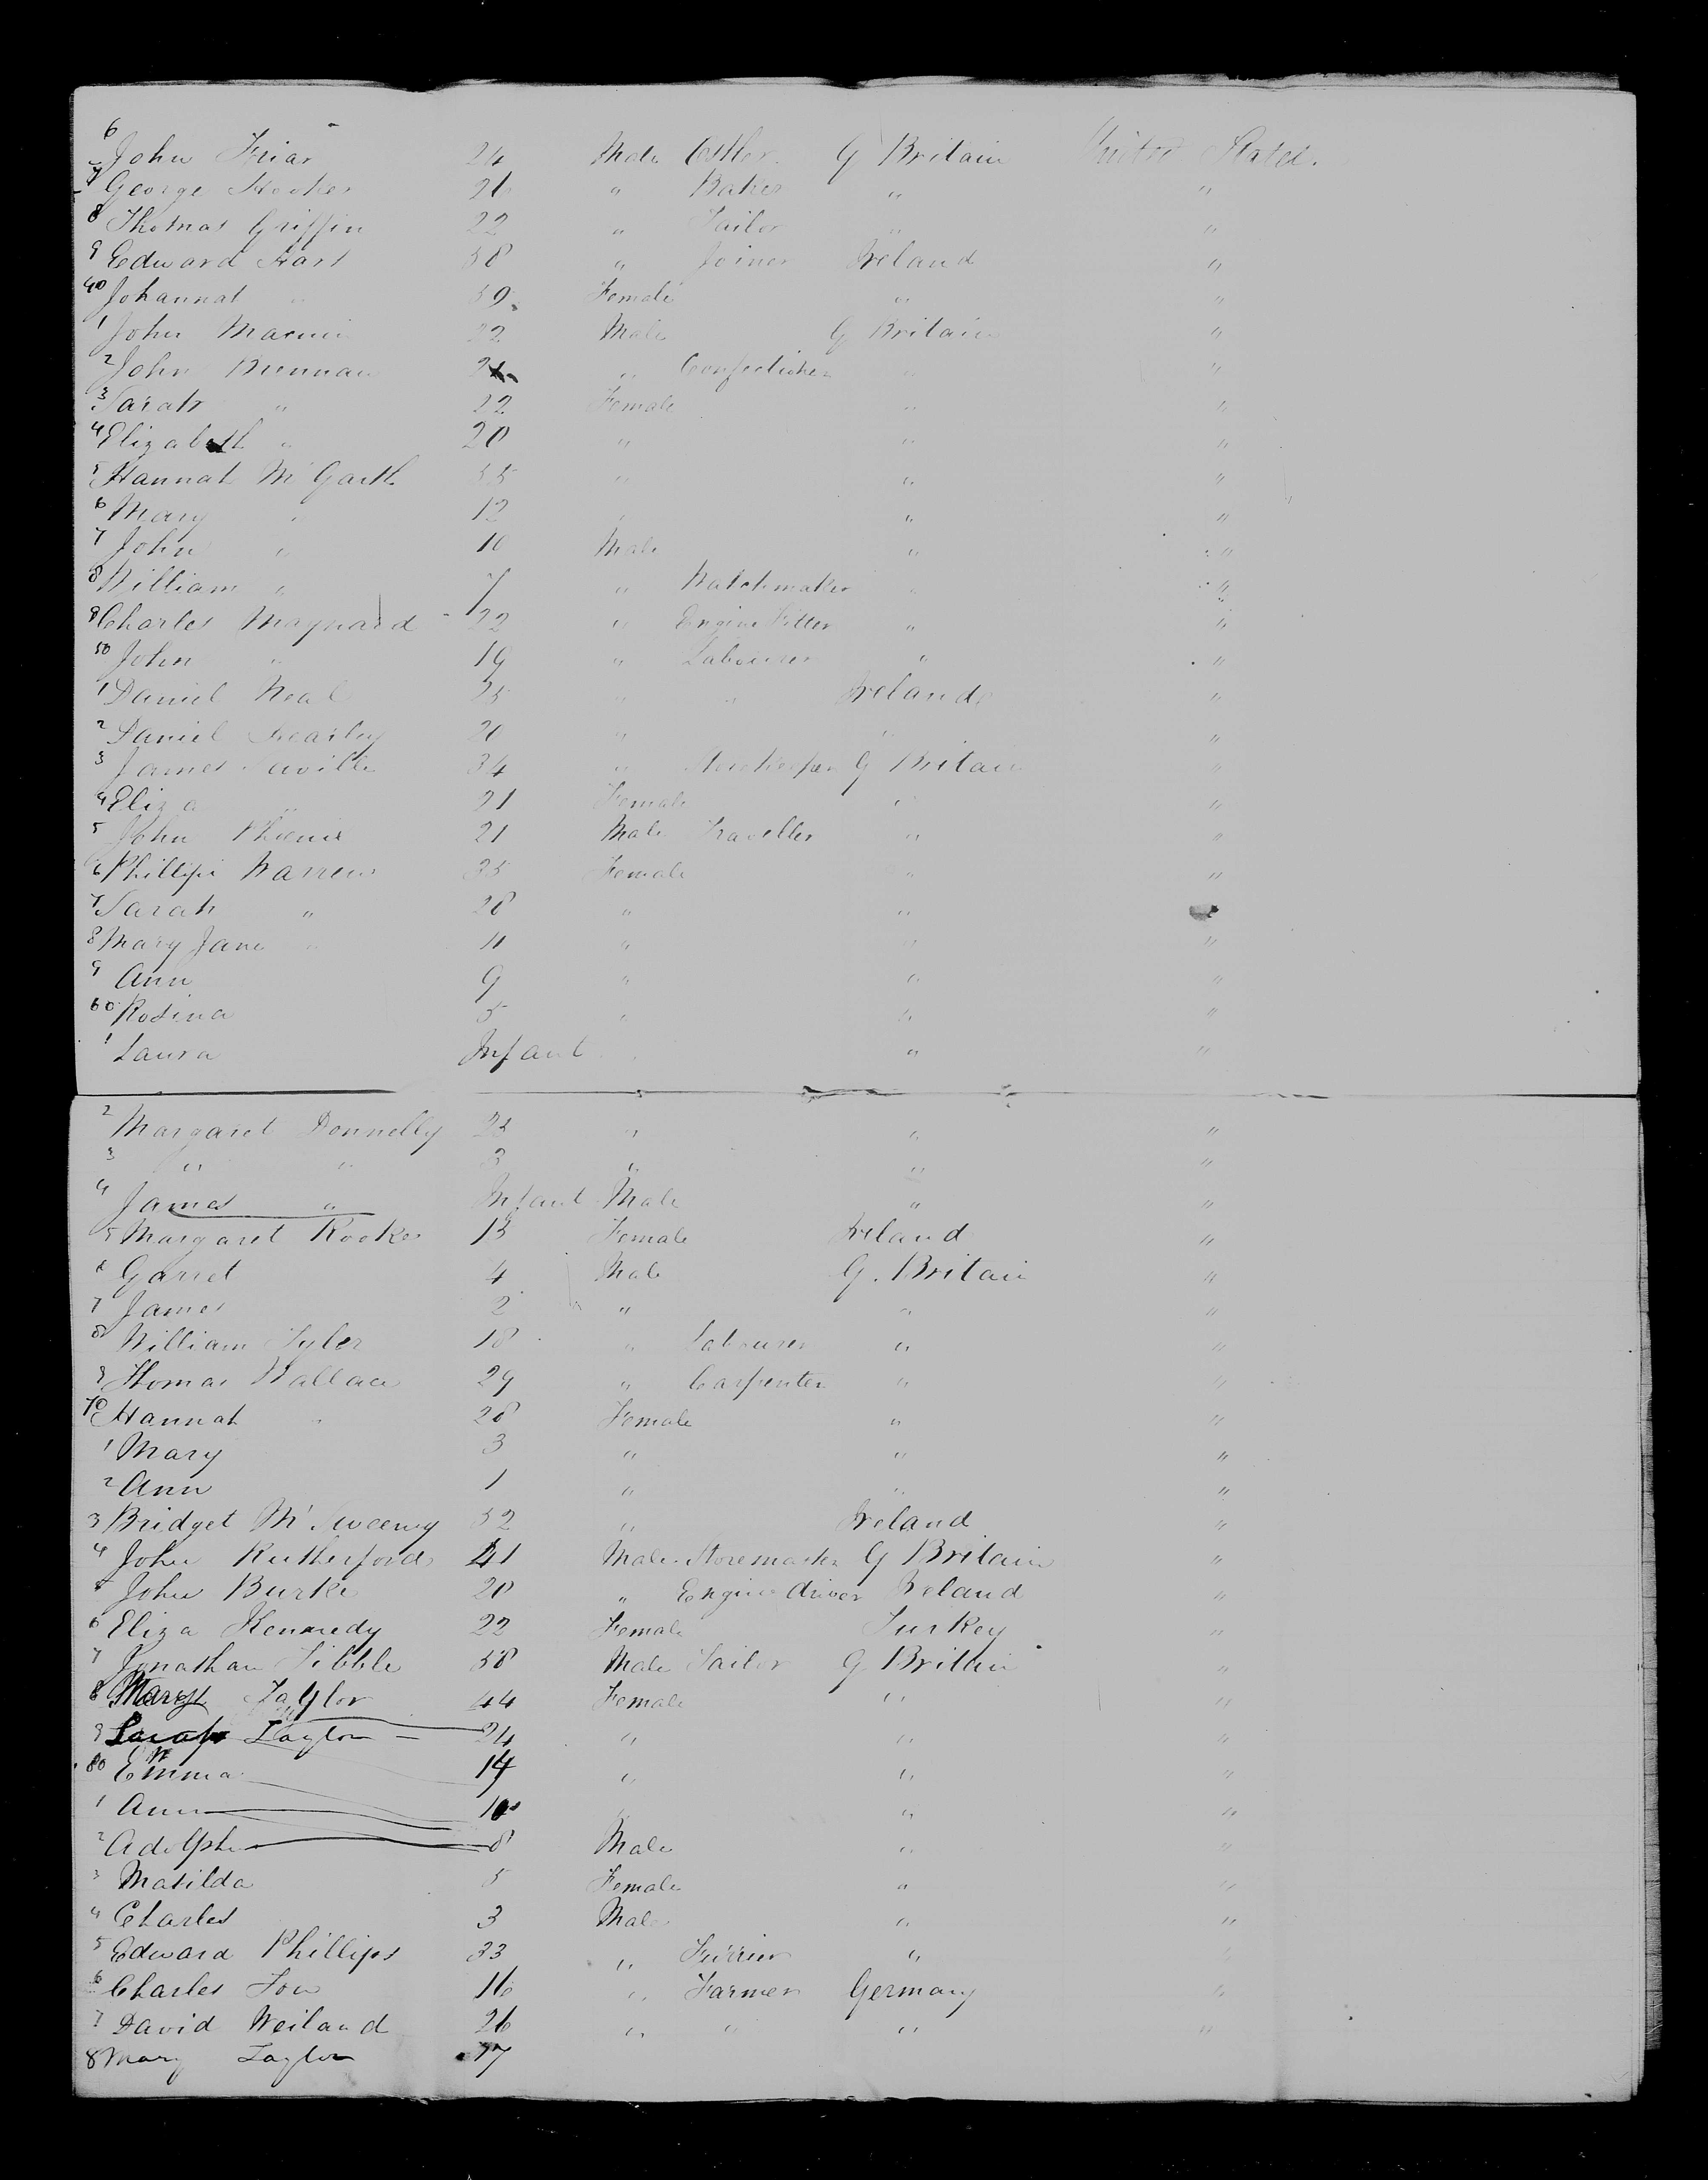 6 John Friar 24 Male Ostler G Britain United States.
7 George Hooker 26 " Baker " "
8 Thomas Griffin 22 " Tailor " "
9 Edward Hart 38 " Joiner Ireland "
40 Johannah " 39 Female " "
1 John 22 Male G Britain "
2 John Brennan 2 " Confectioner " "
3 Sarah " 22 Female " "
4 Elizabeth " 20 " " "
5 Hannah Mc Garth 35 " " "
6 Mary " 12 " " "
7 John " 10 Male " "
8 William " 7 " Watchmaker " "
9 Charles Maynard 22 " Engine Fitter " "
50 John " 19 " Labourer " "
1 Daniel Neal 25 " " Ireland "
2 Daniel 20 " " "
3 James Saville 34 " Storekeeper G Britain "
4 Eliza " 21 Female " "
5 John Phenix 21 Male Traveller " "
6 Phillipi Warren 35 Female " "
7 Sarah " 28 " " "
8 Mary Jane " 11 " " "
9 Ann 9 " " "
60 Rosina 5 " " "
1 Laura Infant " " "
2 Margaret Donnelly 23 " " "
3 " " 3 " " "
4 James " Infant Male " "
5 Margaret Rooke 13 Female Ireland "
6 Garret 4 Male G. Britain "
7 James 2 " " "
8 William Tyler 18 " Labourer " "
9 Thomas Wallace 29 " Carpenter " "
70 Hannah " 28 Female " "
1 Mary 3 " " "
2 Ann 1 " " "
3 Bridget Mc Sweeny 32 " Ireland "
4 John Rutherford 41 Male Storemaster G Britain "
5 John Burke 20 " Engine driver Ireland "
6 Eliza Kennedy 22 Female Turkey "
7 Jonathan Tibble 38 Male Tailor G Britain "
8 Mary Taylor 44 Female " "
9 Sarah Taylor 24 " " "
80 Emma 14 " " "
1 Ann 10 " " "
2 Adolphe 8 Male " "
3 Matilda 5 Female " "
4 Charles 3 Male " "
5 Edward Phillips 33 " Furrier " "
6 Charles 16 " Farmer Germany "
7 David Weiland 26 " " " "
8 Mary Taylor 17